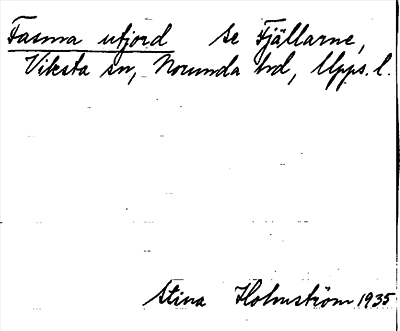 Fasma utjord se Fjällarne,
Viksta sn, Norunda hd, Upps. l.
Stina Holmström 1935